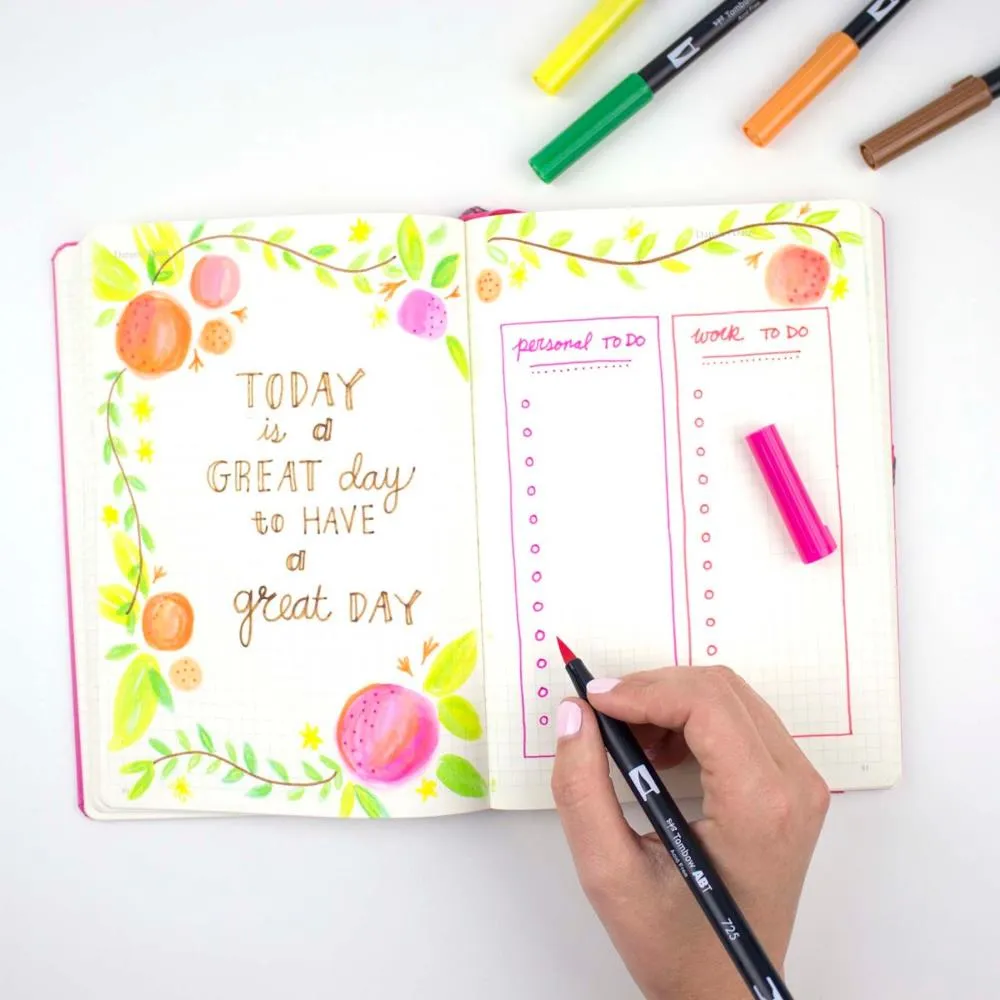 TODAY
is a
GREAT day
to HAVE
a
great DAY
personal TO DO
work TO DO
Tombow
Tombow ABT
725
91